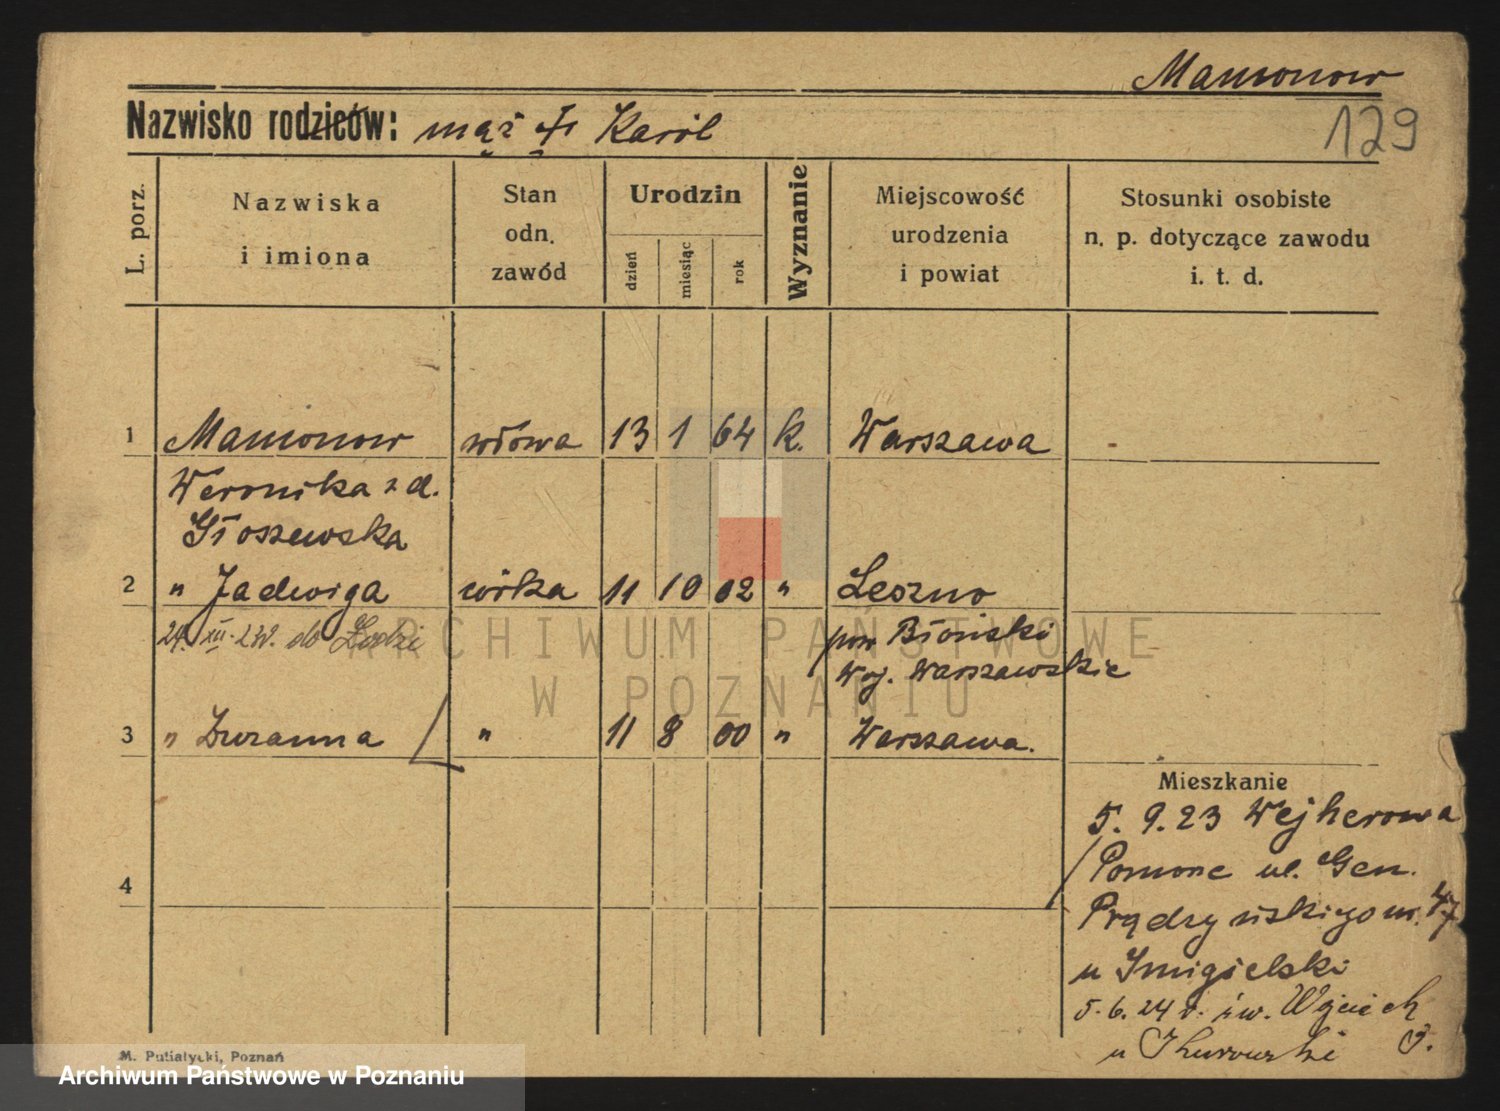 Mamonow
129
Nazwisko rodziców: mąż † Karól
L. porz.
Nazwiska
i imiona
Stan
odn.
zawód
Urodzin
dzień
miesiąc
rok
Wyznanie
Miejscowość
urodzenia
i powiat
Stosunki osobiste
n. p. dotyczące zawodu
i. t. d.
1 Mamonow wdowa 13 1 64 k. Warszawa
Weronika z d.
Głoszewska
2 " Jadwiga córka 11 10 02 " Leszno
24. XII. do Łodzi
pow Błoński
Woj. Warszawskie
3 " Zuzanna " 11 8 00 " Warszawa.
Mieszkanie
5. 9. 23 Wejherowa
Pomorze ul. Gen.
4
Prądzyńskiego m. 47
u Śmigielski
5. 6. 24 r. św. Wojciech 3.
u
M. Putiatycki, Poznań
ARCHIWUM PAŃSTWOWE
W POZNANIU
Archiwum Państwowe w Poznaniu